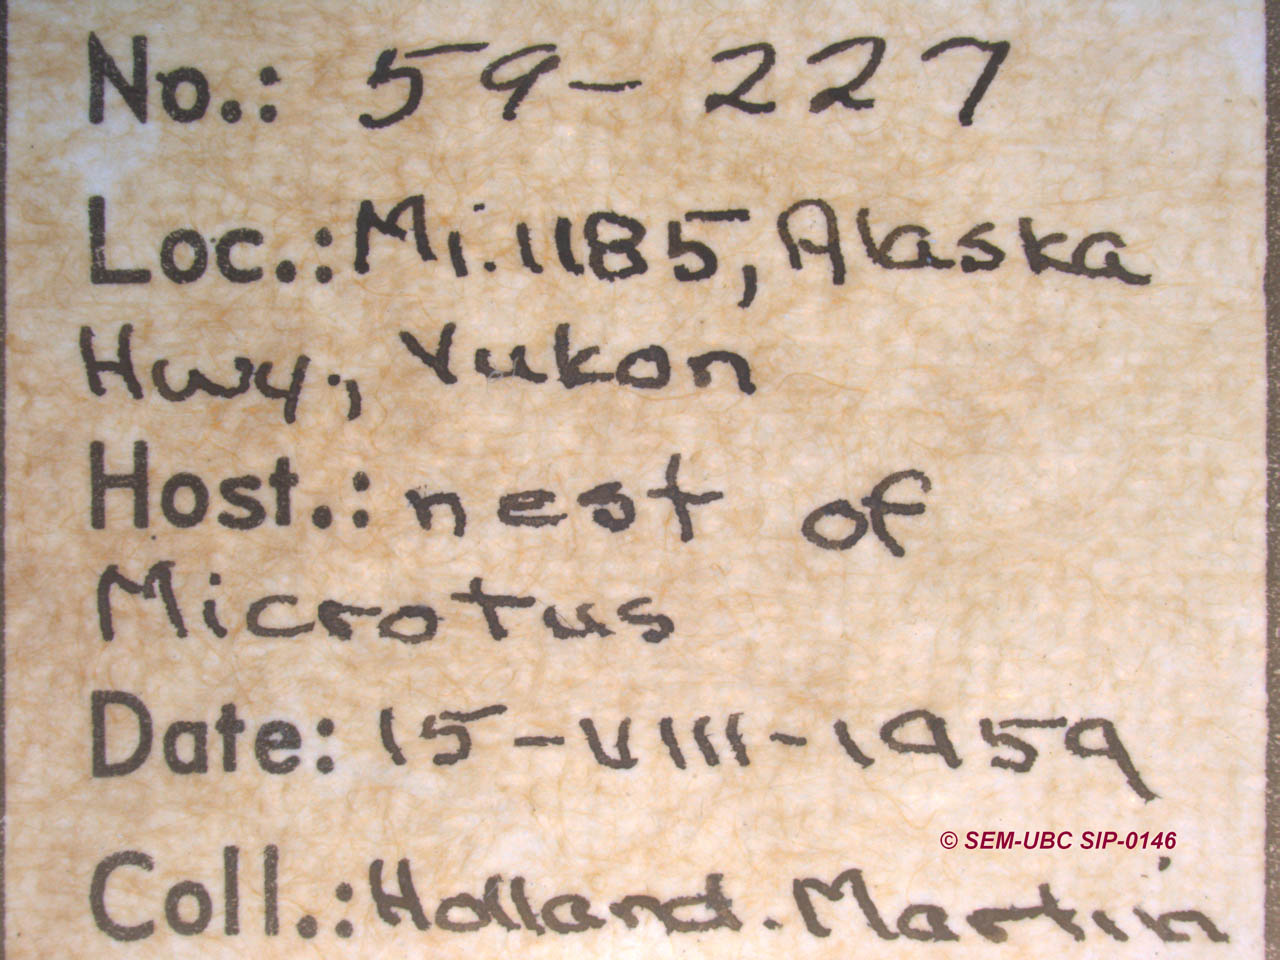 No.: 59-227
Loc.: Mi. 1185, Alaska
Hwy., Yukon
Host.: nest of
Microtus
Date: 15-VIII-1959
© SEM-UBC SIP-0146
Coll.: Holland. Martin